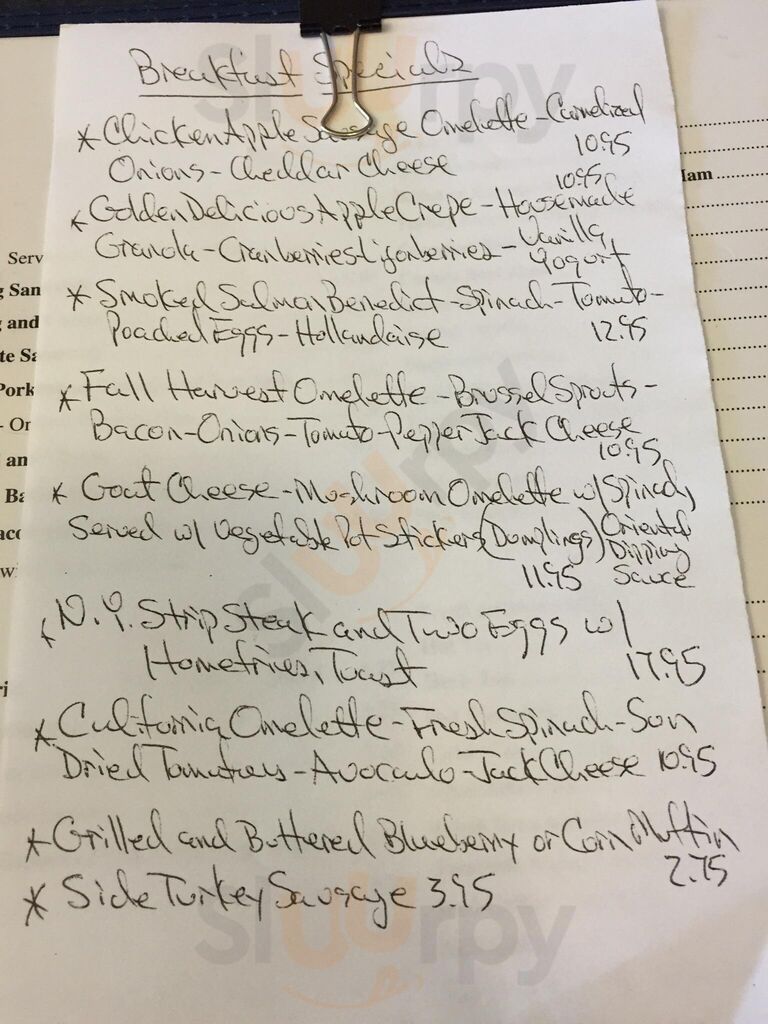 Breakfast Specials
* Chicken Apple Sausage Omelette - Carmelized
Onions - Cheddar Cheese 10.95
* Golden Delicious Apple Crepe - Housemade 10.95
Granola - Cranberries - Ligonberries - Vanilla
Yogurt
* Smoked Salmon Benedict - Spinach - Tomato -
Poached Eggs - Hollandaise 12.95
* Fall Harvest Omelette - Brussel Sprouts -
Bacon - Onions - Tomato - Pepper Jack Cheese
10.95
* Goat Cheese - Mushroom Omelette w/ Spinach
Served w/ Vegetable Pot Stickers (Dumplings) Oriental
Dipping
11.95 Sauce
* N.Y. Strip Steak and Two Eggs w/
Homefries, Toast 17.95
* California Omelette - Fresh Spinach - Sun
Dried Tomatoes - Avocado - Jack Cheese 10.95
* Grilled and Buttered Blueberry or Corn Muffin
2.75
* Side Turkey Sausage 3.95
Serv
San
and
te Sa
Pork
- On
an
Ba
w
Ham
sluurpy
sluurpy
sluurpy